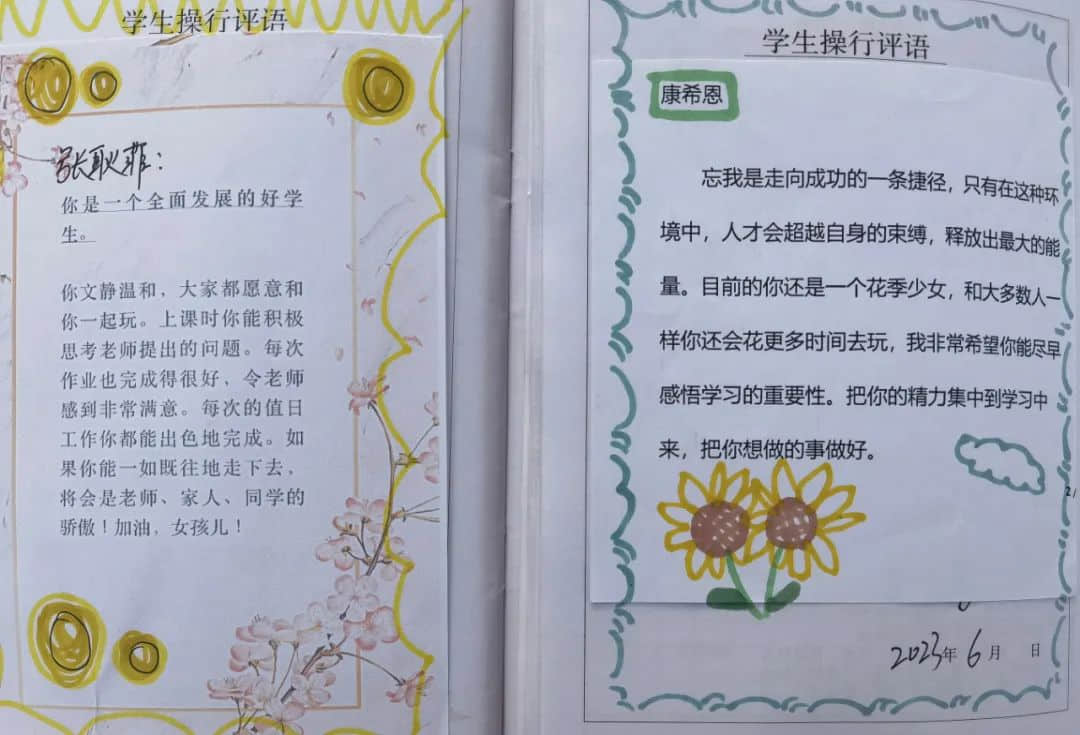 学生操行评语
张耿菲：
你是一个全面发展的好学
生。
你文静温和，大家都愿意和
你一起玩。上课时你能积极
思考老师提出的问题。每次
作业也完成得很好，令老师
感到非常满意。每次的值日
工作你都能出色地完成。如
果你能一如既往地走下去，
将会是老师、家人、同学的
骄傲！加油，女孩儿！
学生操行评语
康希恩
忘我是走向成功的一条捷径，只有在这种环
境中，人才会超越自身的束缚，释放出最大的能
量。目前的你还是一个花季少女，和大多数人一
样你还会花更多时间去玩，我非常希望你能尽早
感悟学习的重要性。把你的精力集中到学习中
来，把你想做的事做好。
2023年6月 日